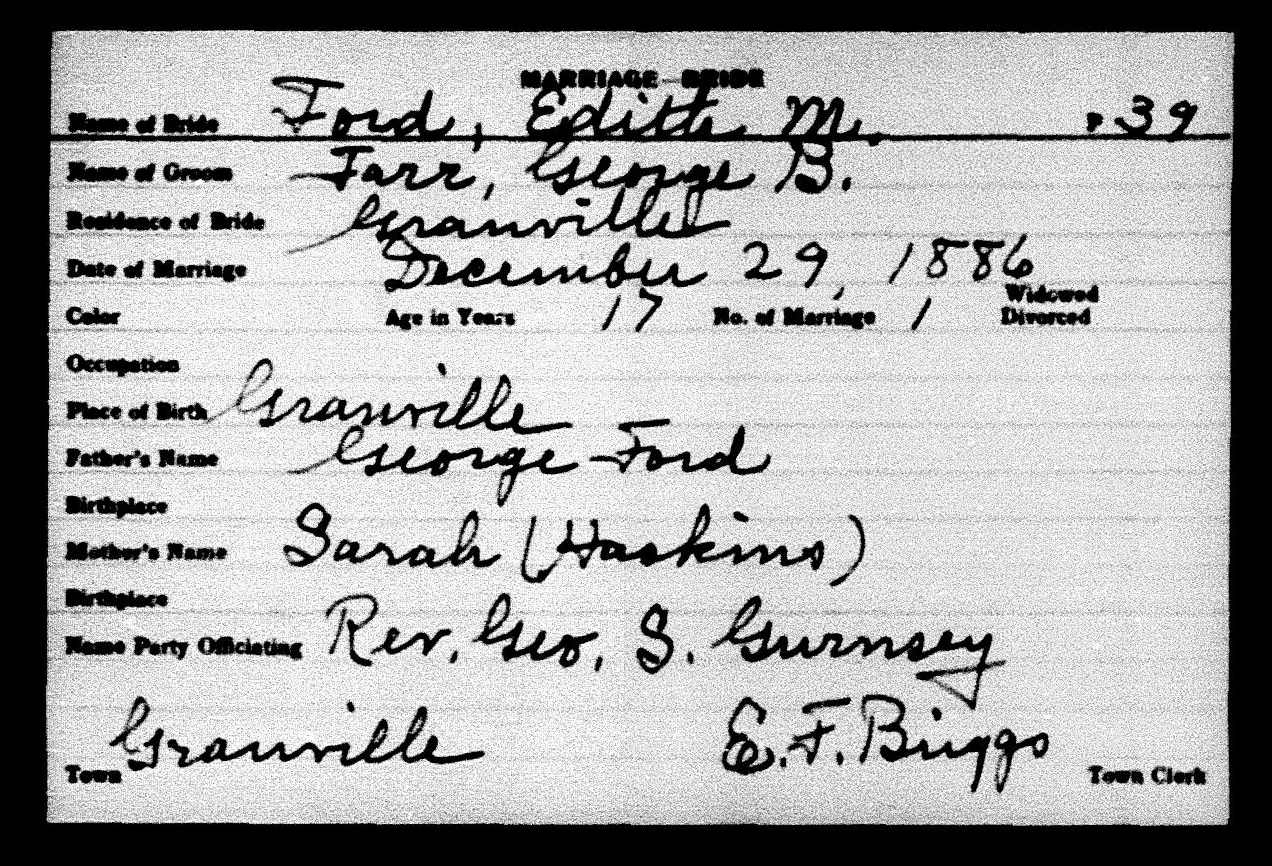 MARRIAGE—BRIDE
Name of Bride Ford, Edith M. P 39
Name of Groom Farr, George B.
Residence of Bride Granville
Date of Marriage December 29, 1886
Widowed
Color Age in Years 17 No. of Marriage 1 Divorced
Occupation
Place of Birth Granville
Father's Name George Ford
Birthplace
Mother's Name Sarah (Haskins)
Birthplace
Name Party Officiating Rev. Geo. S. Gurnsey
Granville E. F. Briggs
Town Town Clerk